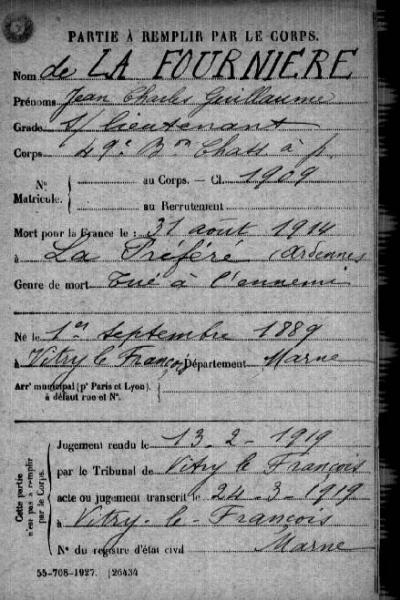 PARTIE À REMPLIR PAR LE CORPS.
Nom de LA FOURNIERE
Prénoms Jean Charles Guillaume
Grade s/lieutenant
Corps 49e Bon Chass à p.
N° Matricule. { au Corps. — Cl. 1909
au Recrutement
Mort pour la France le : 31 août 1914
à La Préféré Ardennes
Genre de mort Tué à l'ennemi
Né le 1er septembre 1889
à Vitry le François Département Marne
Arr' municipal (p' Paris et Lyon),
à défaut rue et N°.
Cette partie n'est pas à remplir par le Corps.
Jugement rendu le 13-2-1919
par le Tribunal de Vitry le François
acte ou jugement transcrit le 24-3-1919
à Vitry-le-François
N° du registre d'état civil Marne
55-708-1927. [26434